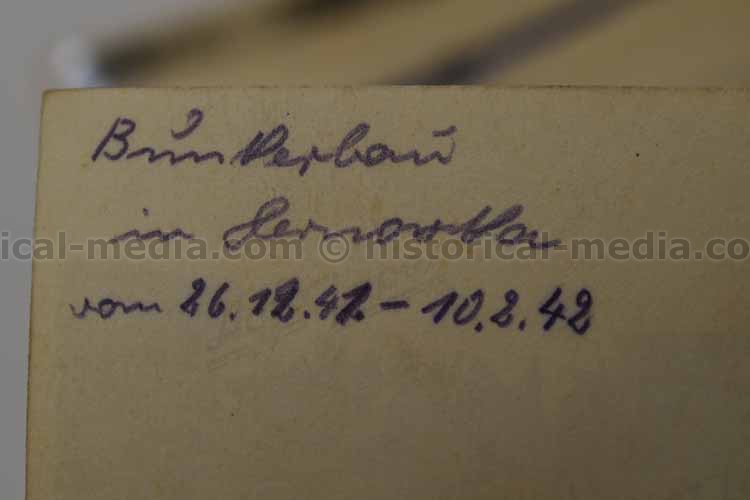 Bunkerbau
in Sernowka
vom 26.12.41 – 10.2.42
ical-media.com © historical-media.co